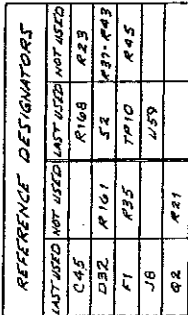 REFERENCE DESIGNATORS
LAST USED NOT USED LAST USED NOT USED
C45 R168 R23
D32 R161 S2 R37-R43
F1 R35 TP10 R45
J8 W59
Q2 R21